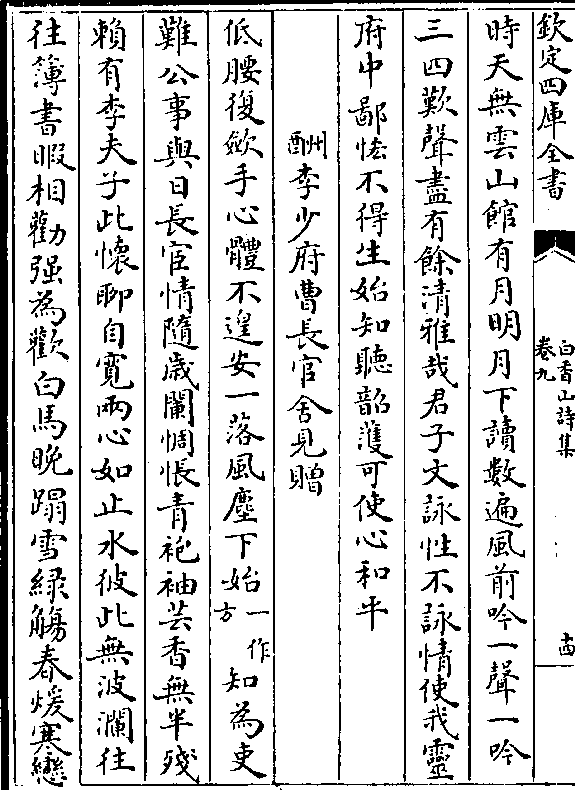 欽定四庫全書
白香山詩集
卷九
十四
時天無雲山館有月明月下讀數遍風前吟一聲一吟
三四歎聲盡有餘清雅哉君子文詠性不詠情使我靈
府中鄙恡不得生始知聽韶頀可使心和平
酬李少府曹長官舍見贈
低腰復斂手心體不遑安一落風塵下始一作方知為吏
難公事與日長宦情隨歲闌惆悵青袍袖芸香無半殘
賴有李夫子此懷聊自寛兩心如止水彼此無波瀾往
往簿書暇相勸强為歡白馬晚蹋雪緑觴春煖寒戀